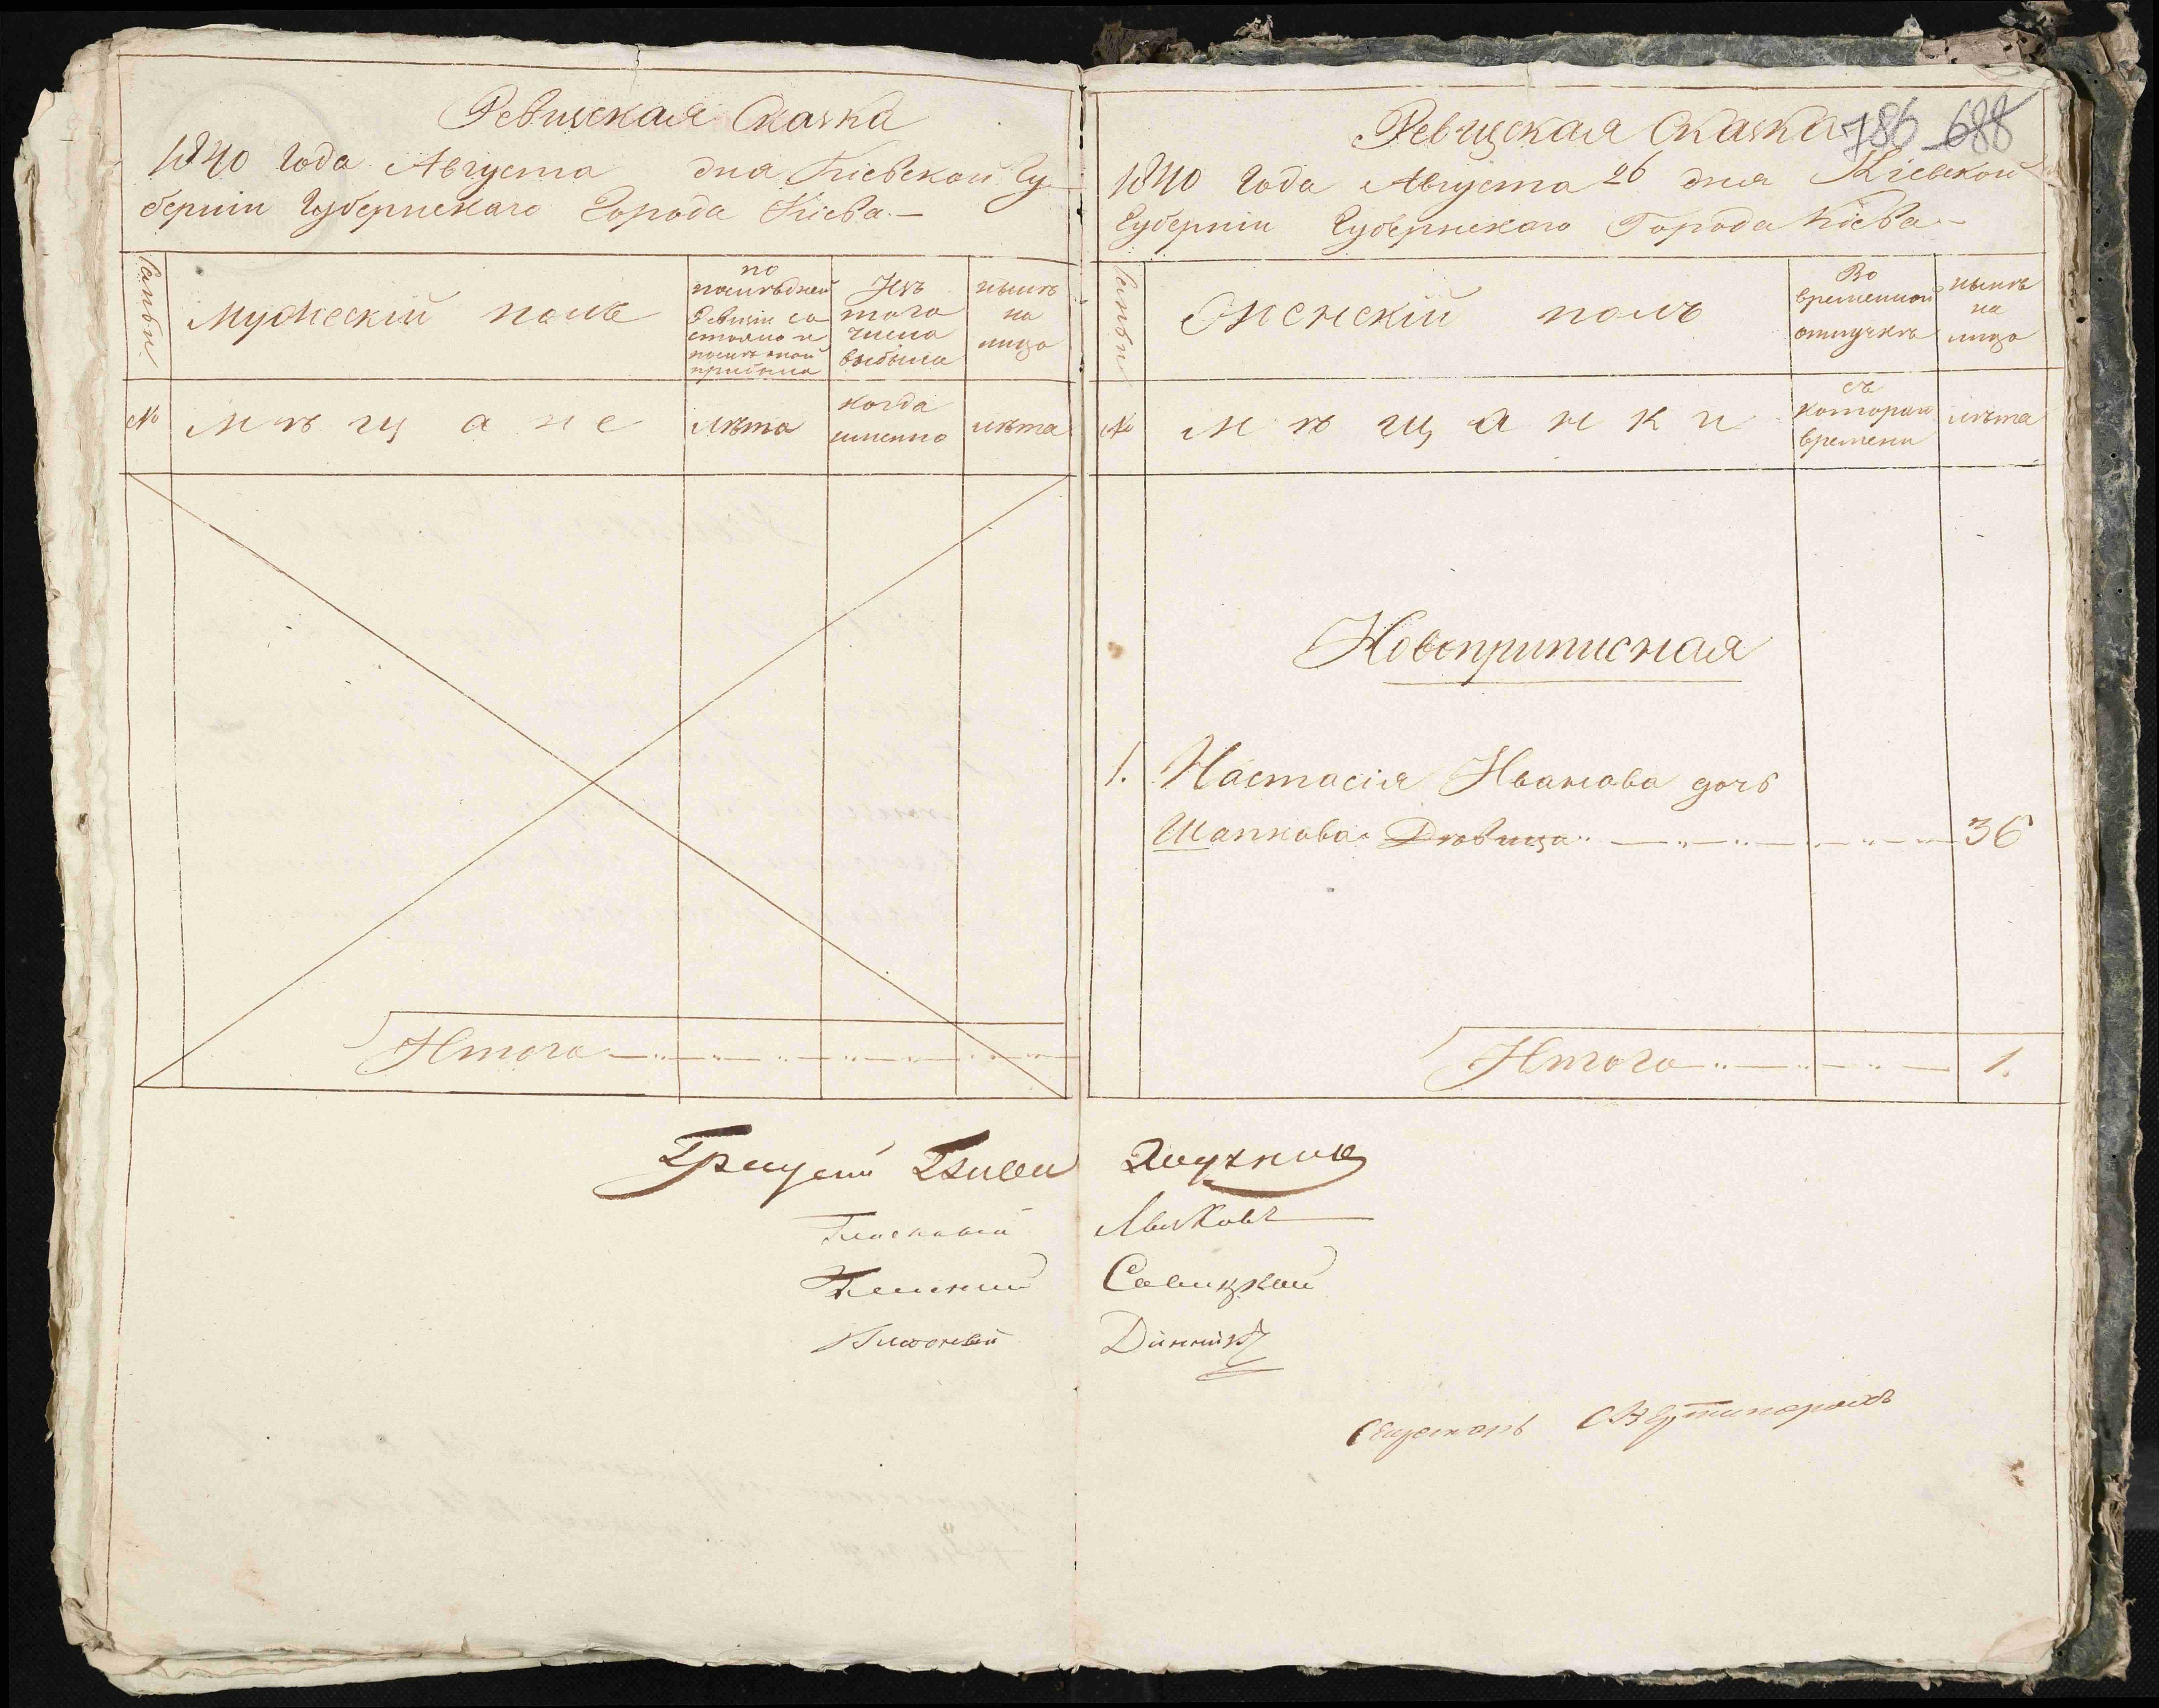 Ревизская Сказка
1840 Года Августа дня Кіевской Гу
берніи Губернскаго Города Кіева. —
Мужескій полъ
по последней Ревизіи состояло и после оной прибыло
Изъ того числа выбыло
ныне на лицо
№
Мѣщане
лѣта
когда имянно
лѣта
Итого
786 688
Ревизская Сказка
1840 Года Августа 26 дня Кіевской
Губерніи Губернскаго Города Кіева —
Женскій полъ
Во временной отлучкѣ
нынѣ на лицо
№
Мѣщанки
съ котораго времени
лѣта
Новоприписная
1. Настасія Иванова дочь
Шапкова Дѣвица 36
Итого 1.
Гласный Савицкій
Гласный Динникъ
Секретарь